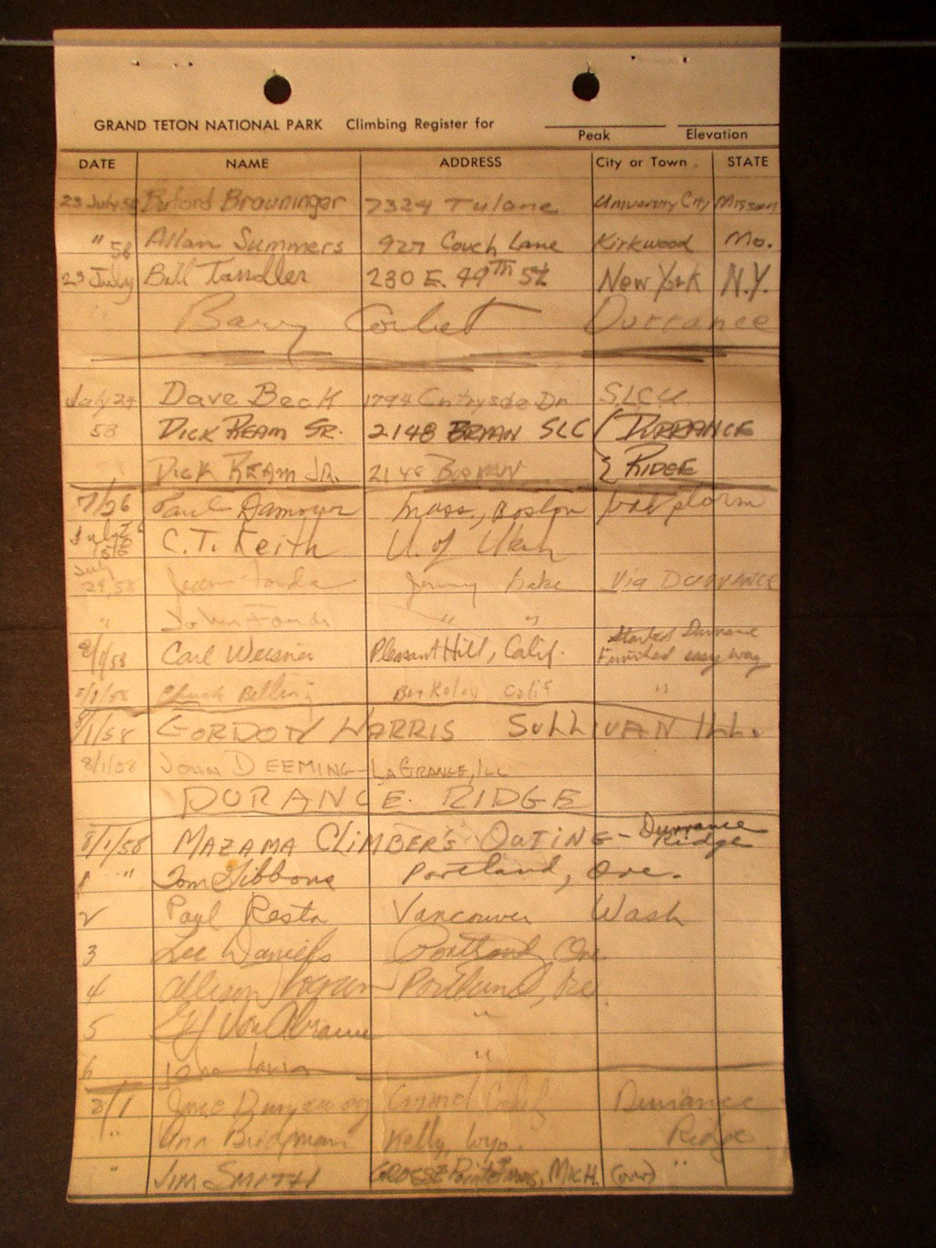 GRAND TETON NATIONAL PARK Climbing Register for
Peak Elevation
DATE NAME ADDRESS City or Town STATE
23 July 58 Buford Brauninger 7324 Tulane University City Missouri
" 58 Allan Summers 927 Couch Lane Kirkwood Mo.
23 July Bill Tandler 230 E. 49th St. New York N.Y.
" Barry Corbet Durrance
July 24 Dave Beck 1794 Cntrysde Dr. SLCU
58 DICK REAM SR. 2148 BRYAN SLC ( DURRANCE
DICK REAM JR. 2148 BRYAN { RIDGE
7/26 Paul Mass., Boston
July 26 C.T. Keith U. of Utah
1958
July
29, 58 Jean Fonda Jenny Lake Via DURRANCE
" John Fonda " "
Started Durrance
8/1/58 Carl Weisner Pleasant Hill, Calif. Finished easy way
8/1/58 Chuck Berkeley Calif "
8/1/58 GORDON HARRIS SULLIVAN Ill.
8/1/58 JOHN DEEMING - LAGRANGE, ILL
DURANCE RIDGE
8/1/58 MAZAMA CLIMBER'S OUTING - Durrance Ridge
1 " Tom Gibbons Portland, Ore.
2 Paul Resta Vancouver Wash
3 Lee Daniels Portland Ore.
4 Allison Logan Portland, Ore.
5 "
6 "
8/1 Calif Durrance
" Ann Bridgman Kelly, Wyo. Ridge
" JIM SMITH GROSSE Pointe, MICH. (over) "